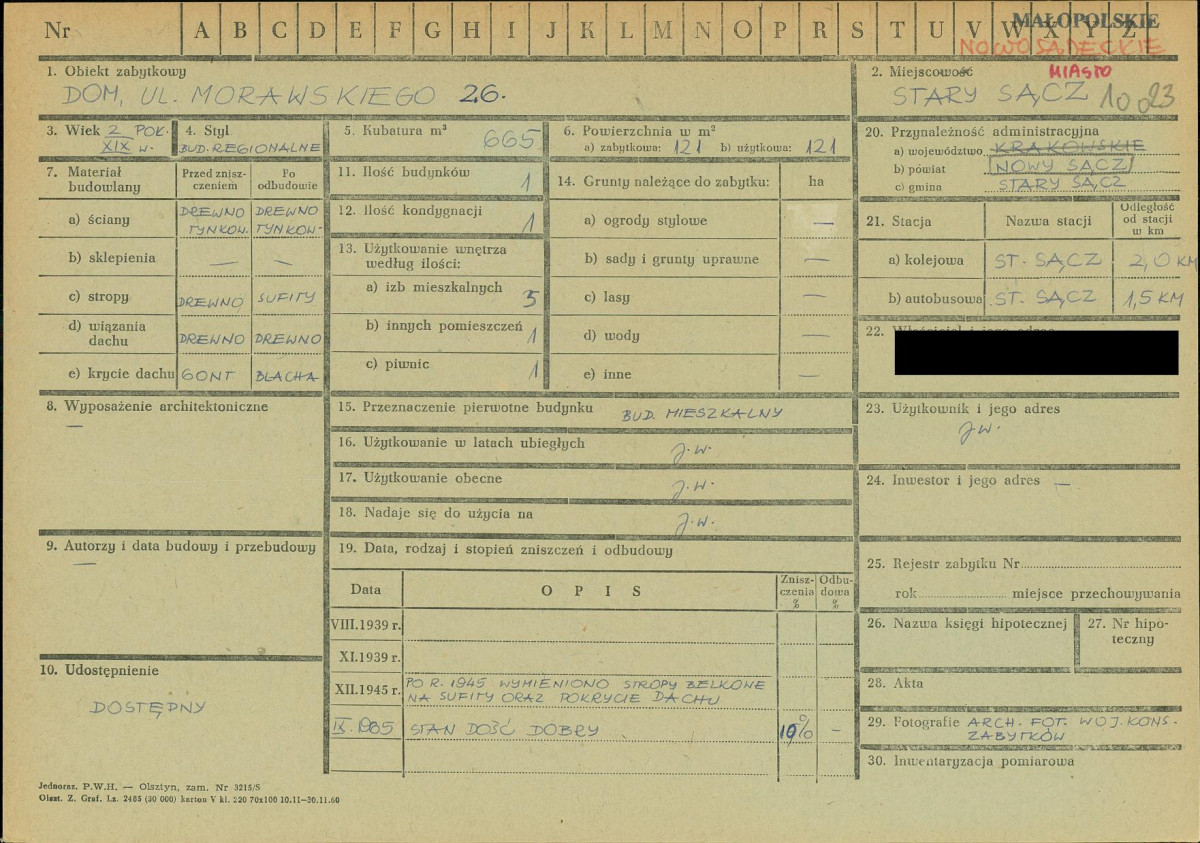 Nr A B C D E F G H I J K L M N O P R S T U V W X Y Z
MAŁOPOLSKIE
NOWOSĄDECKIE
1. Obiekt zabytkowy
DOM, UL. MORAWSKIEGO 26.
2. Miejscowość
MIASTO
STARY SĄCZ 10023
3. Wiek 2 POŁ.
XIX w.
4. Styl
BUD. REGIONALNE
5. Kubatura m³ 665
6. Powierzchnia w m²
a) zabytkowa: 121 b) użytkowa: 121
20. Przynależność administracyjna
a) województwo KRAKOWSKIE
b) powiat NOWY SĄCZ
c) gmina STARY SĄCZ
7. Materiał budowlany
Przed znisz-
czeniem
Po
odbudowie
a) ściany DREWNO DREWNO
TYNKOW. TYNKOW.
b) sklepienia — —
c) stropy DREWNO SUFITY
d) wiązania
dachu DREWNO DREWNO
e) krycie dachu GONT BLACHA
11. Ilość budynków 1
12. Ilość kondygnacji 1
13. Użytkowanie wnętrza
według ilości:
a) izb mieszkalnych 5
b) innych pomieszczeń 1
c) piwnic 1
14. Grunty należące do zabytku: ha
a) ogrody stylowe —
b) sady i grunty uprawne —
c) lasy —
d) wody —
e) inne —
21. Stacja Nazwa stacji
Odległość
od stacji
w km
a) kolejowa ST. SĄCZ 2,0 KM
b) autobusowa ST. SĄCZ 1,5 KM
22. Właściciel i jego adres
8. Wyposażenie architektoniczne
—
15. Przeznaczenie pierwotne budynku BUD. MIESZKALNY
16. Użytkowanie w latach ubiegłych J.W.
17. Użytkowanie obecne J.W.
18. Nadaje się do użycia na J.W.
23. Użytkownik i jego adres
J.W.
24. Inwestor i jego adres —
9. Autorzy i data budowy i przebudowy
—
19. Data, rodzaj i stopień zniszczeń i odbudowy
Data OPIS
Znisz-
czenia
%
Odbu-
dowa
%
VIII.1939 r.
XI.1939 r.
XII.1945 r. PO R. 1945 WYMIENIONO STROPY BELKOWE
NA SUFITY ORAZ POKRYCIE DACHU
IX.1965 STAN DOŚĆ DOBRY 10% —
10. Udostępnienie
DOSTĘPNY
25. Rejestr zabytku Nr
rok miejsce przechowywania
26. Nazwa księgi hipotecznej
27. Nr hipo-
teczny
28. Akta
29. Fotografie ARCH. FOT. WOJ. KONS-
ZABYTKÓW
30. Inwentaryzacja pomiarowa
Jednoraz. P.W.H. — Olsztyn, zam. Nr 3215/S
Olszt. Z. Graf. Lz. 2485 (30 000) karton V kl. 220 70x100 10.11—30.11.60